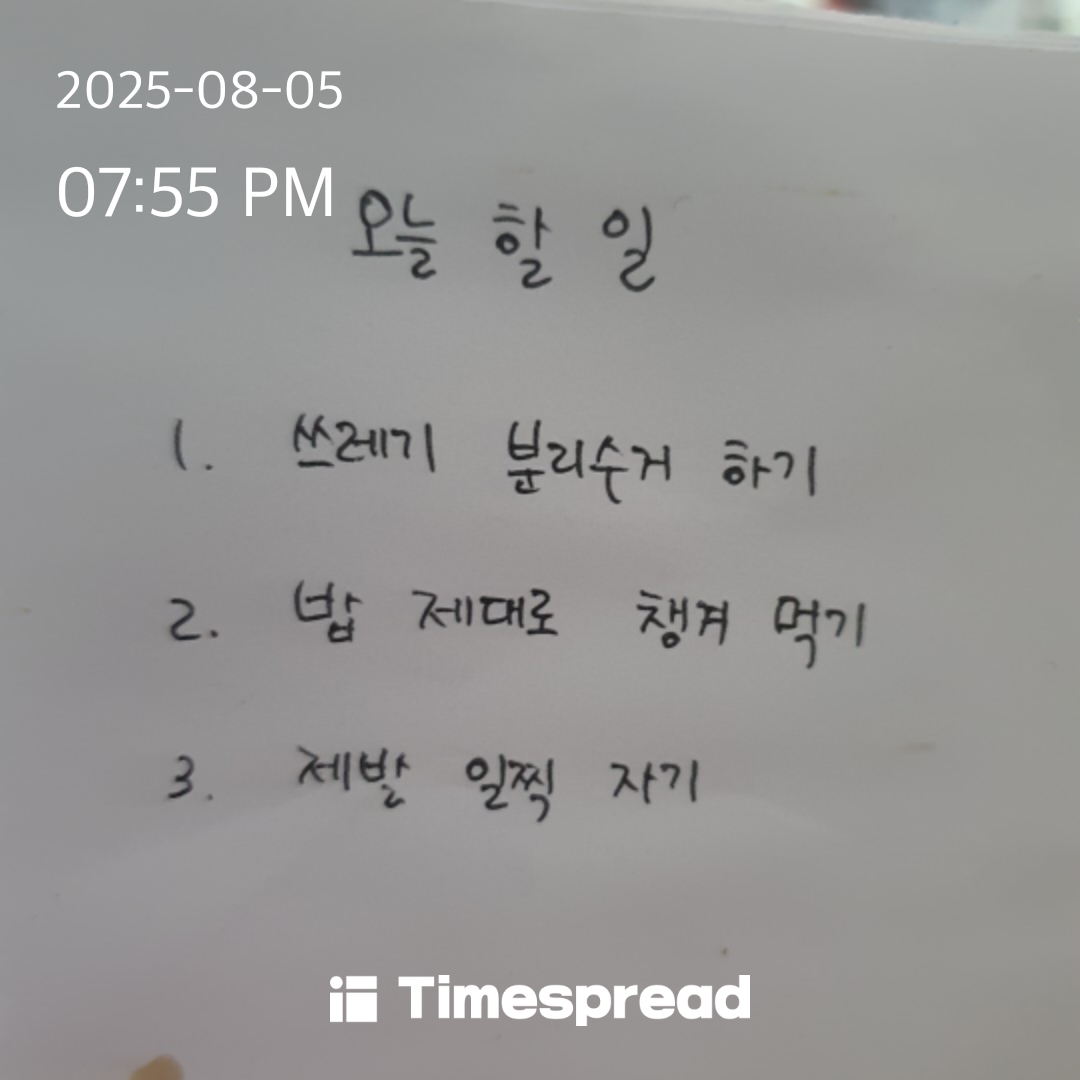 2025-08-05
07:55 PM
오늘 할 일
1. 쓰레기 분리수거 하기
2. 밥 제대로 챙겨 먹기
3. 제발 일찍 자기
Timespread